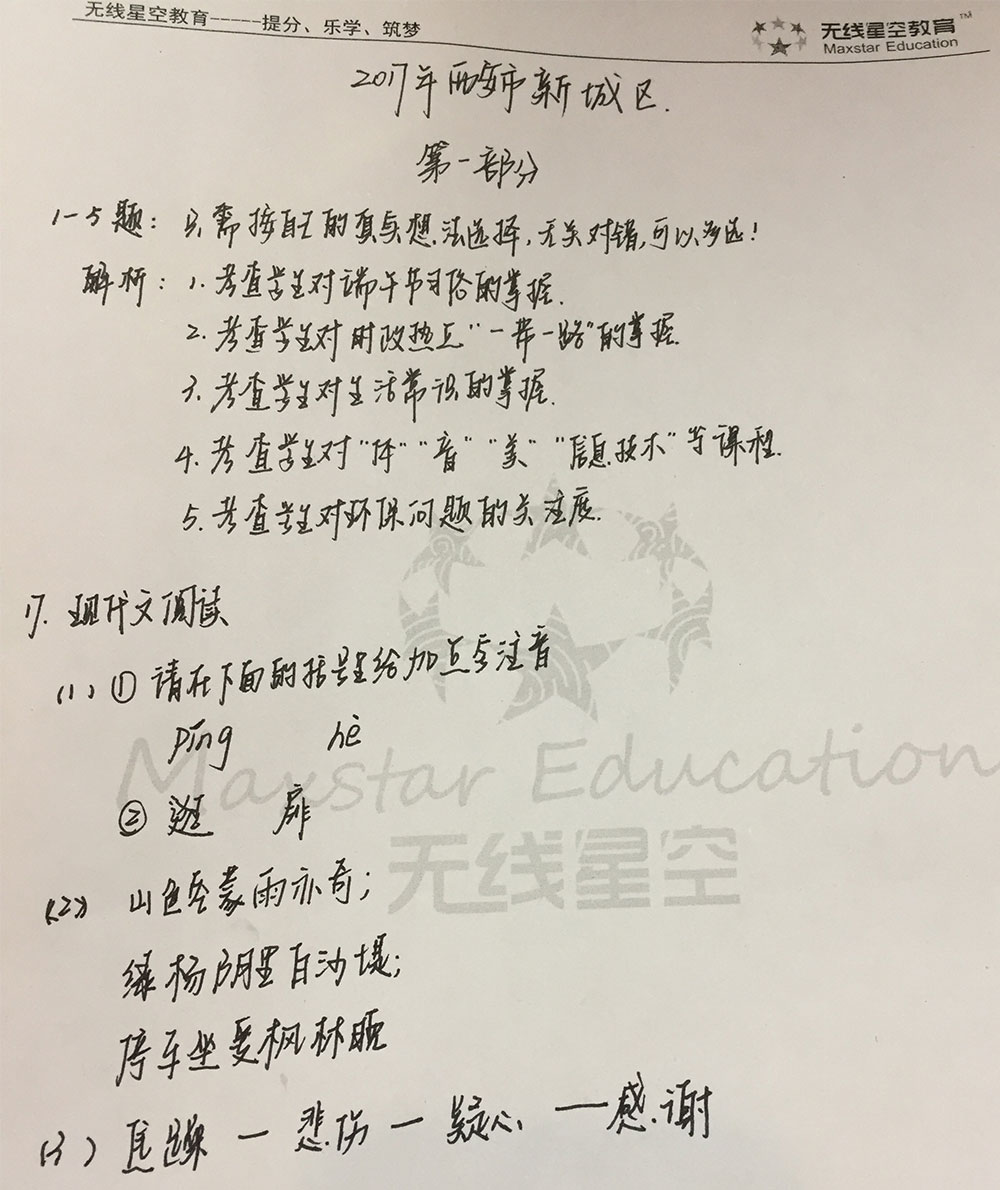 无线星空教育-----提分、乐学、筑梦
无线星空教育™
Maxstar Education
2017年西安市新城区.
第一部分
1-5题：只需按自己的真实想法选择,无关对错,可以多选!
解析：1.考查学生对端午节习俗的掌握.
2.考查学生对时政热点"一带一路"的掌握.
3.考查学生对生活常识的掌握.
4.考查学生对"体""音""美""信息技术"等课程.
5.考查学生对环保问题的关注度.
17.现代文阅读
(1)①请在下面的括号里给加点字注音
píng hè
②逛 扉
(2)山色空蒙雨亦奇;
绿杨阴里白沙堤;
停车坐爱枫林晚
(3)焦躁—悲伤—疑心—感谢
Maxstar Education
无线星空